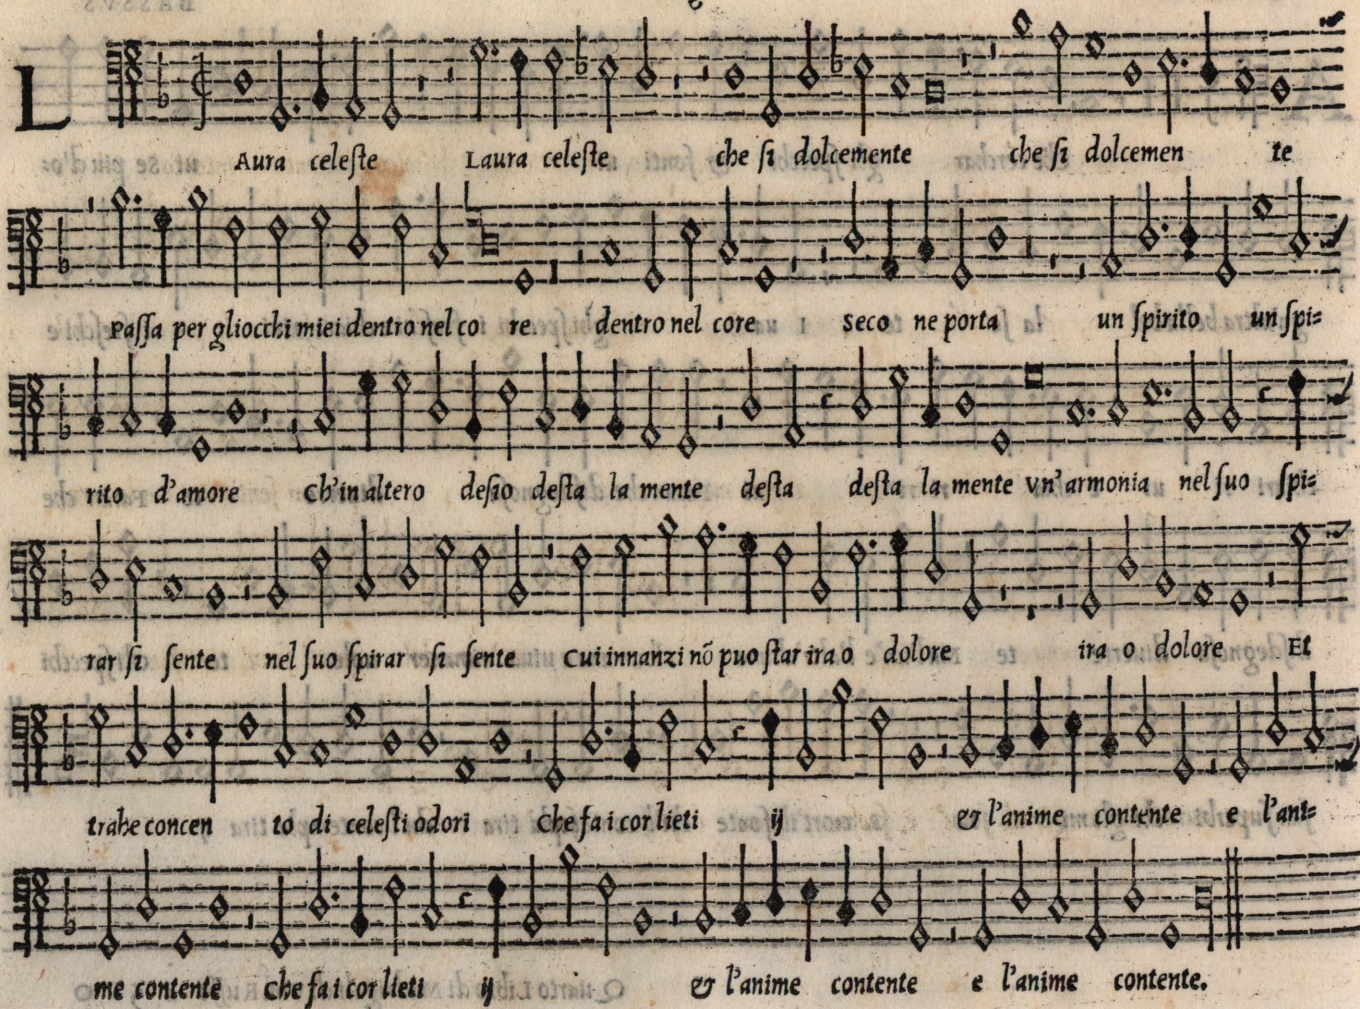 L
Aura celeſte Laura celeſte che ſi dolcemente che ſi dolcemen te
Paſſa per gliocchi miei dentro nel co re dentro nel core Seco ne porta un ſpirito un ſpi=
rito d'amore Ch'in altero deſio deſta la mente deſta deſta la mente Vn'armonia nel ſuo ſpi=
rar ſi ſente nel ſuo ſpirar ſi ſente Cui innanzi nõ puo ſtar ira o dolore ira o dolore Et
trahe concen to di celeſti odori Che fa i cor lieti ij & l'anime contente e l'ani=
me contente Che fa i cor lieti ij & l'anime contente e l'anime contente.